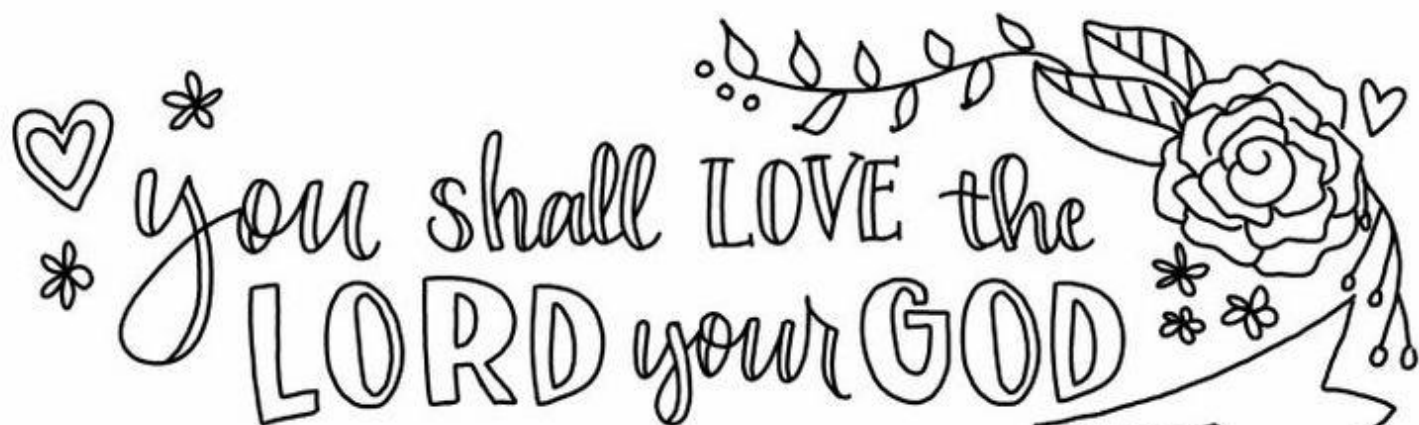 you shall LOVE the
LORD your GOD